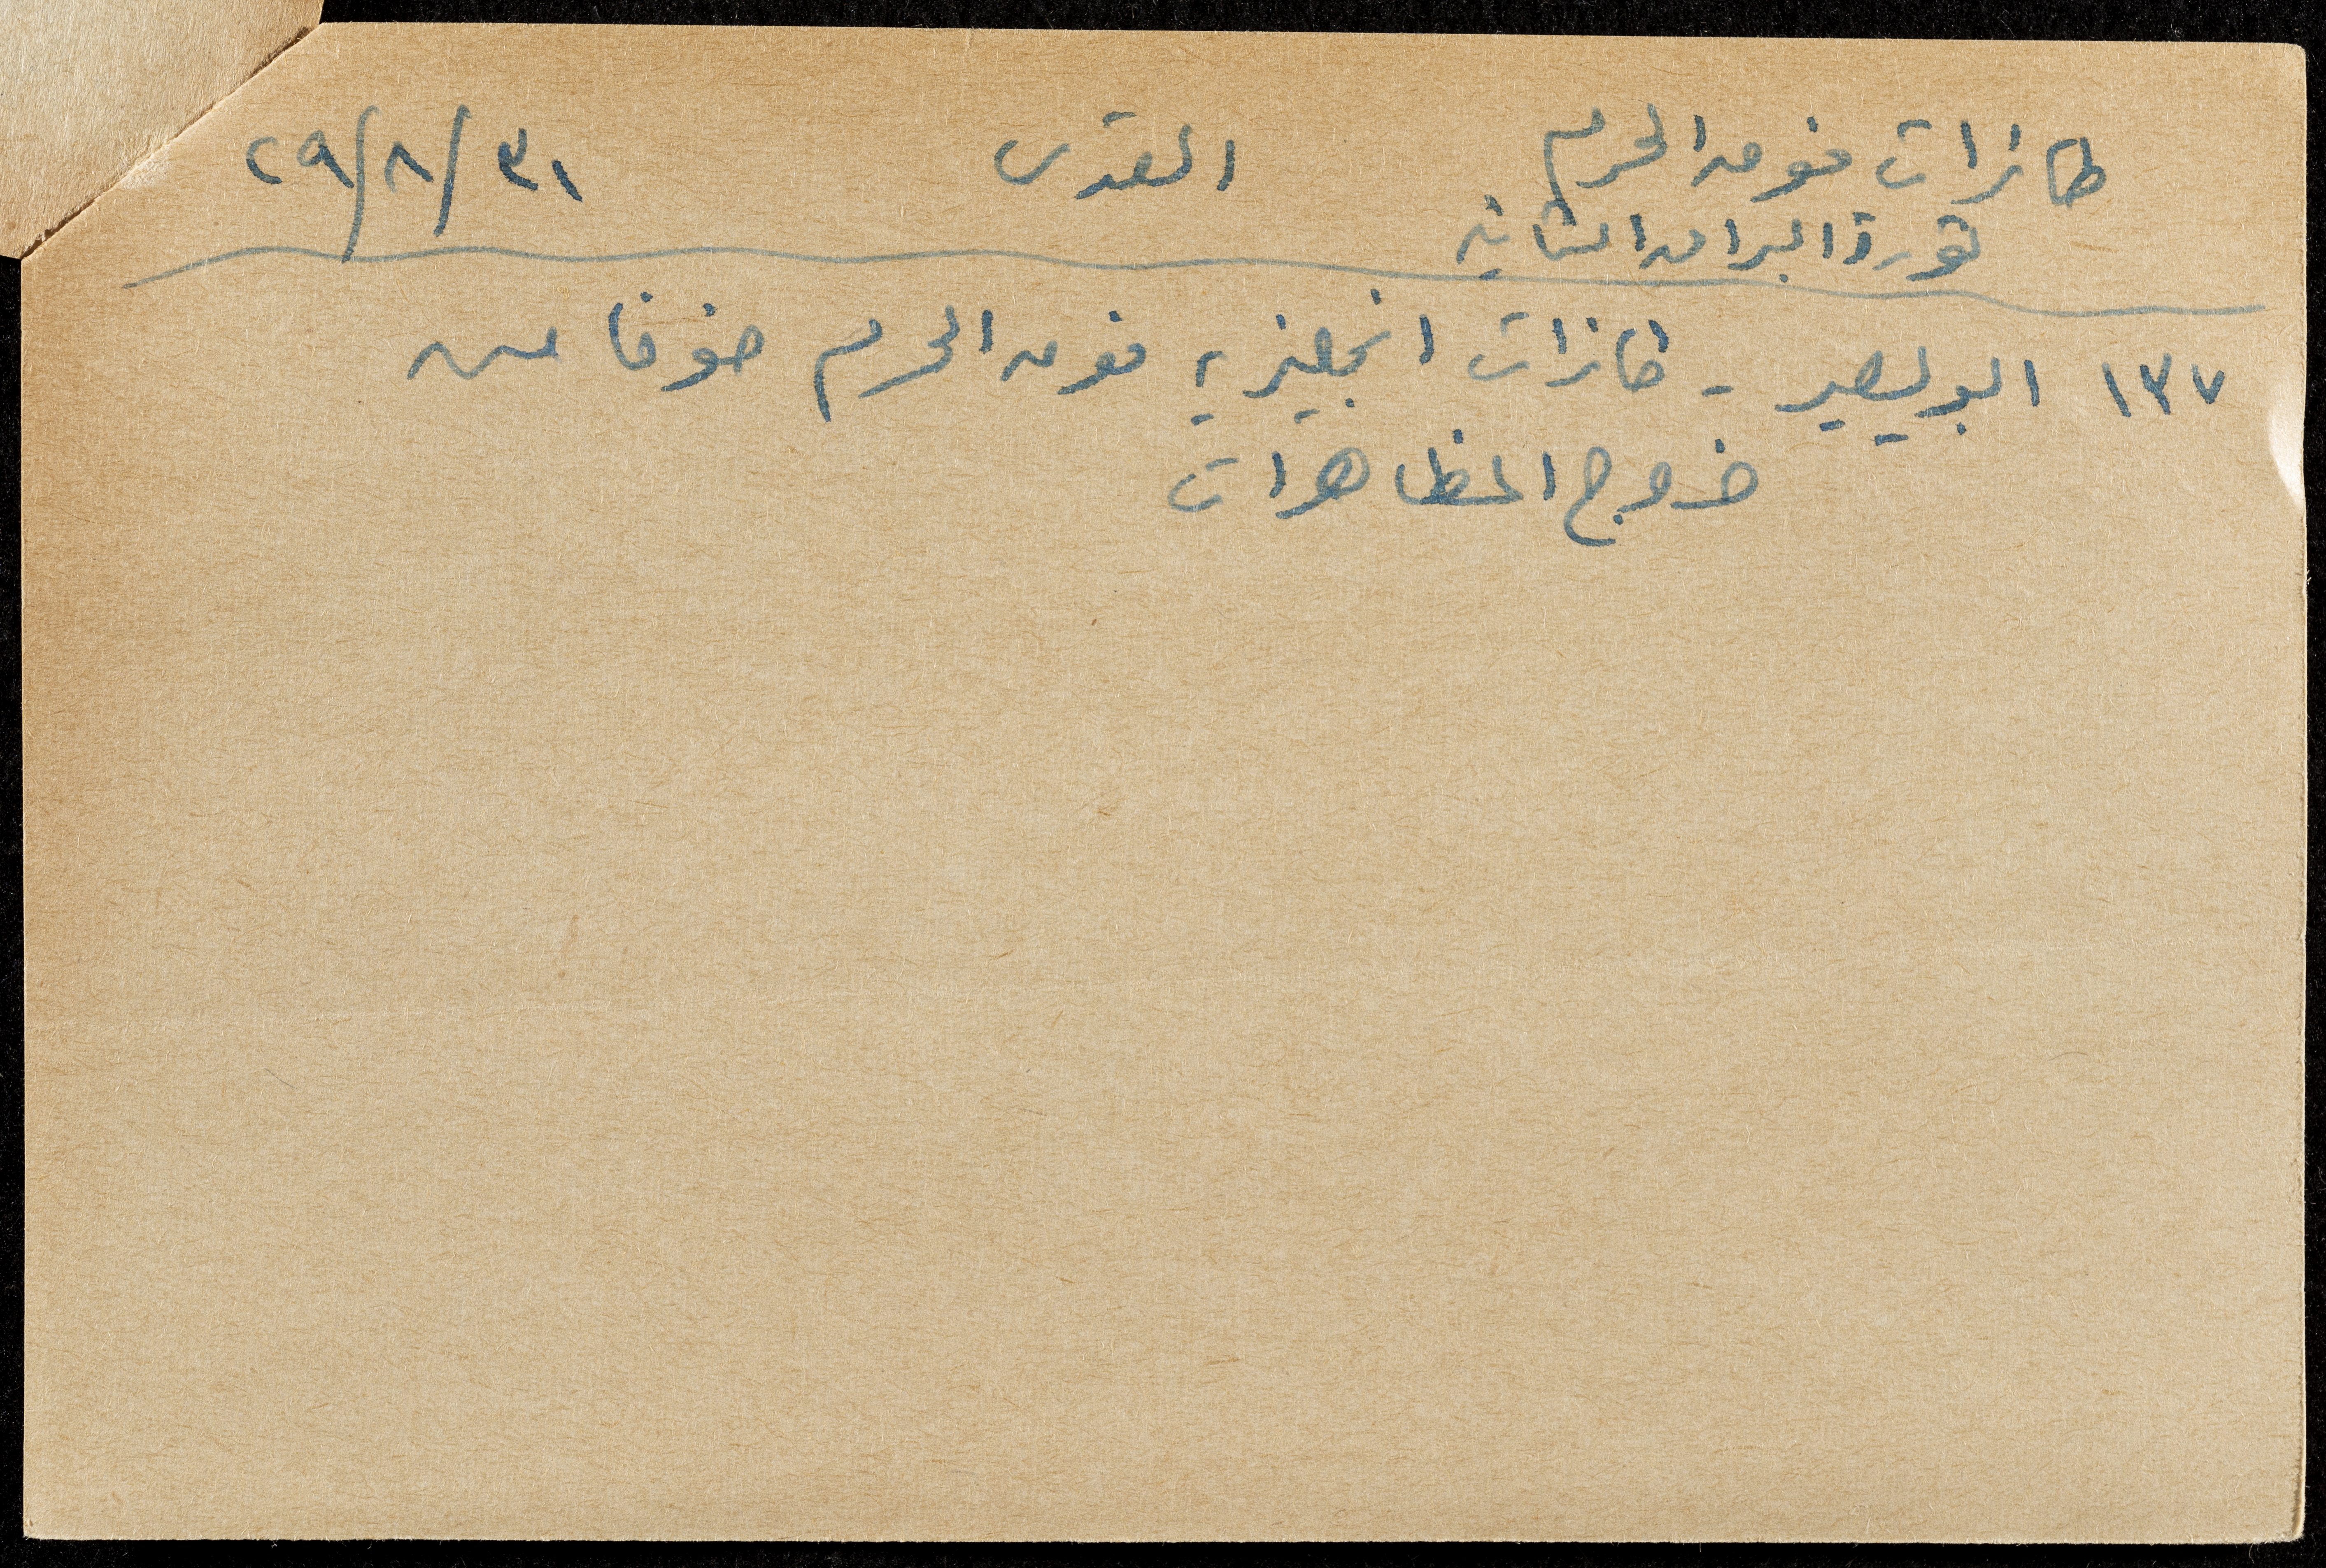 طائرات فوق الحرم القدس ٣١/٨/٢٩
ثورة البراق الثانية
١٣٧ البويصير - طائرات انجليزية فوق الحرم خوفا من
خروج المظاهرات